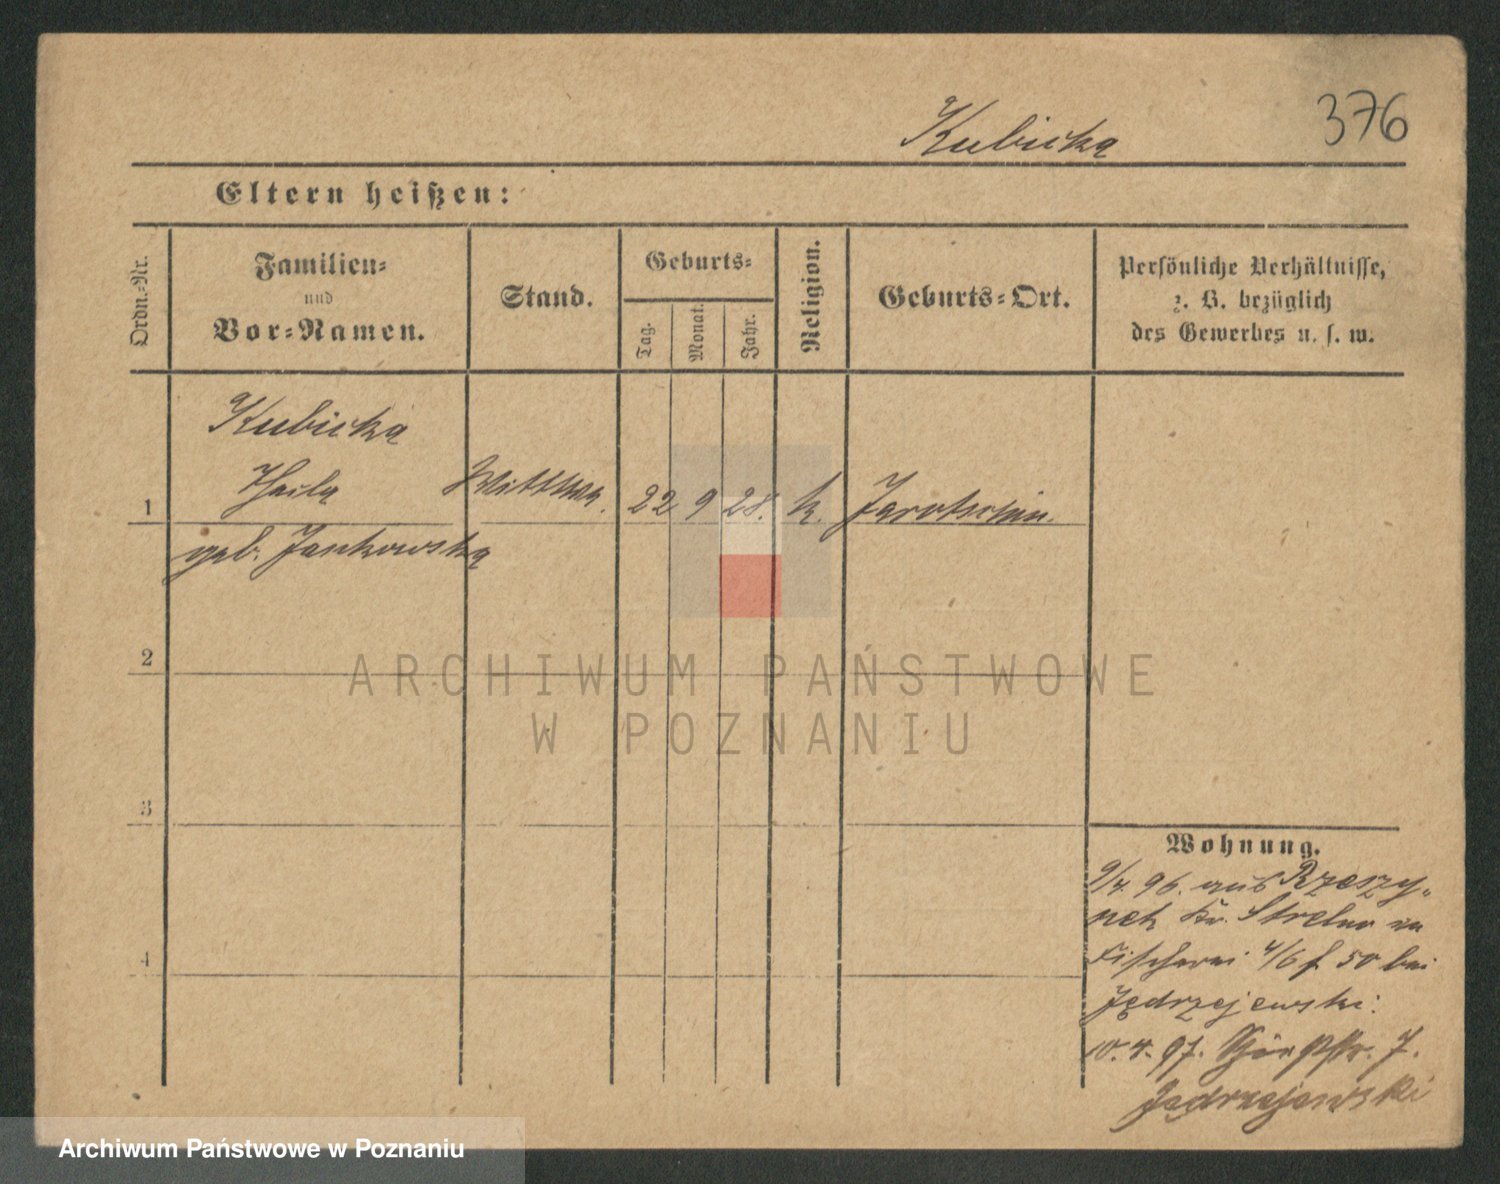 376
Kubicka
Eltern heißen:
Ordn.-Nr.
Familien-
und
Vor-Namen.
Stand.
Geburts-
Tag.
Monat.
Jahr.
Religion.
Geburts-Ort.
Persönliche Verhältnisse,
z. B. bezüglich
des Gewerbes u. s. w.
Kubicka
Thecla
1 Wittwe. 22 9 28. k. Jarotschin.
geb. Jankowska
2
3
4
ARCHIWUM PAŃSTWOWE
W POZNANIU
Wohnung.
9/4. 96. aus Rzeszy-
nek Kr. Strelno in
Fischerei 4/6 f. 50 bei
Jędrzejewski:
10. 4. 97. 7.
Jędrzejewski
Archiwum Państwowe w Poznaniu